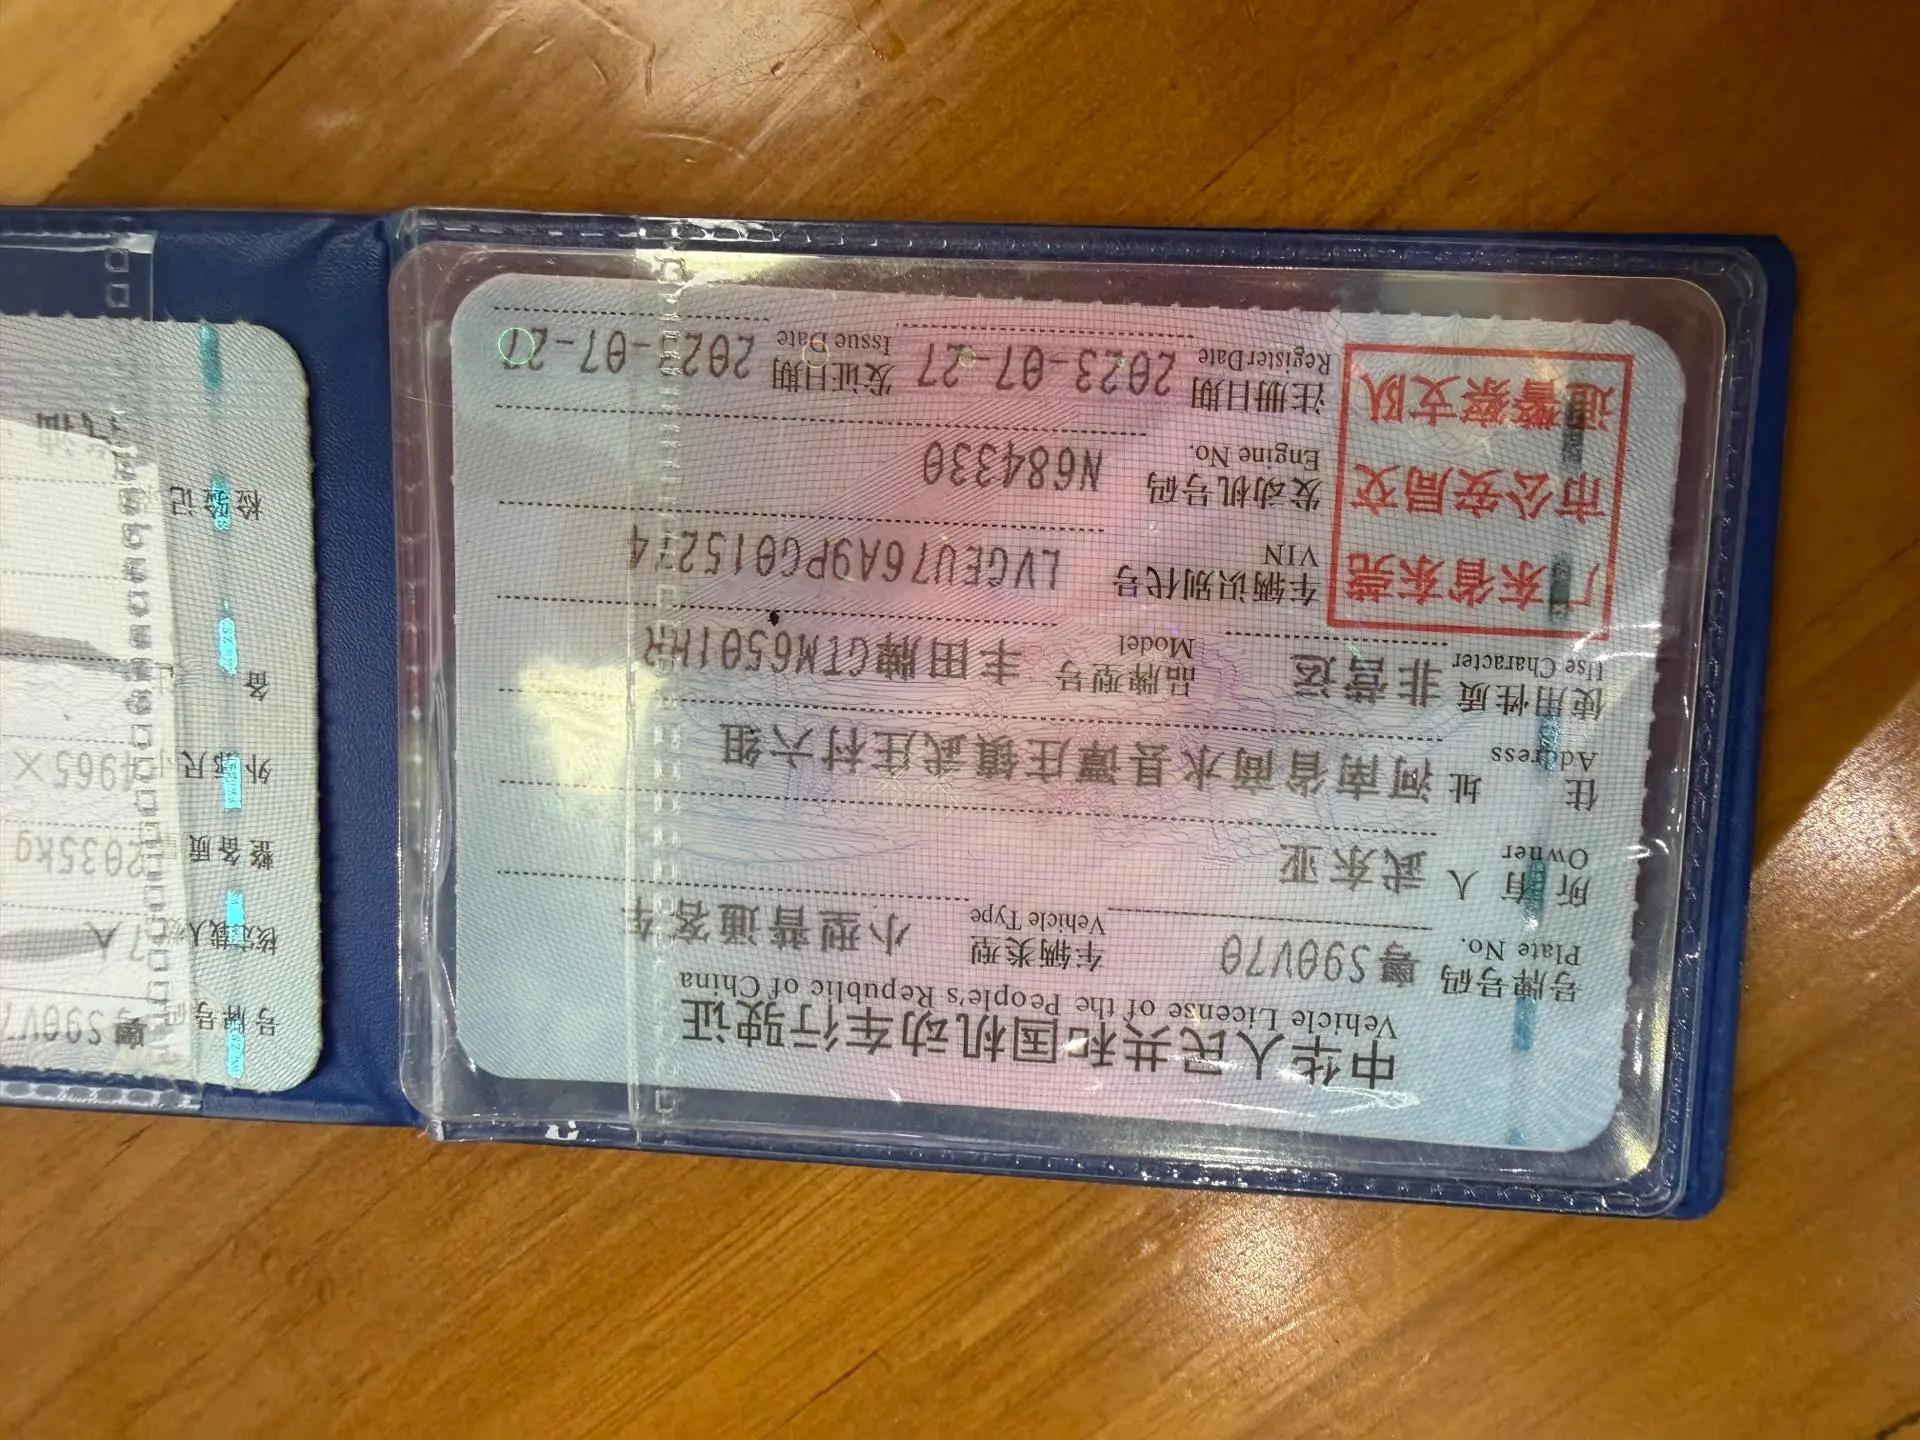 中华人民共和国机动车行驶证
Vehicle License of the People's Republic of China
号牌号码 粤S90V70 车辆类型 小型普通客车
Plate No. Vehicle Type
所有人 武东亚
Owner
住址 河南省商水县谭庄镇武庄村六组
Address
使用性质 非营运 品牌型号 丰田牌GTM6501HR
Use Character Model
广东省东莞
市公安局交
通警察支队
车辆识别代号 LVGEU76A9PG015274
VIN
发动机号码 N684330
Engine No.
注册日期 2023-07-27 发证日期 2023-07-27
Register Date Issue Date
号牌号码 粤S90V7
核定载人数 7人
整备质 2035kg
外廓尺 4965×
备
检验记
汽油